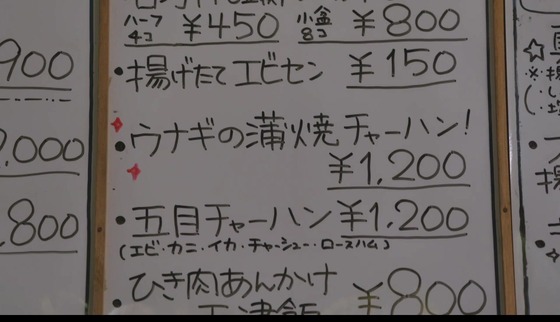 900
,000
,800
ハーフ 4コ ¥450 小盆 8コ ¥800
・揚げたてエビセン ¥150
・ウナギの蒲焼チャーハン!
¥1,200
・五目チャーハン ¥1,200
(エビ・カニ・イカ・チャーシュー・ロースハム)
・ひき肉あんかけ
天津飯 ¥800